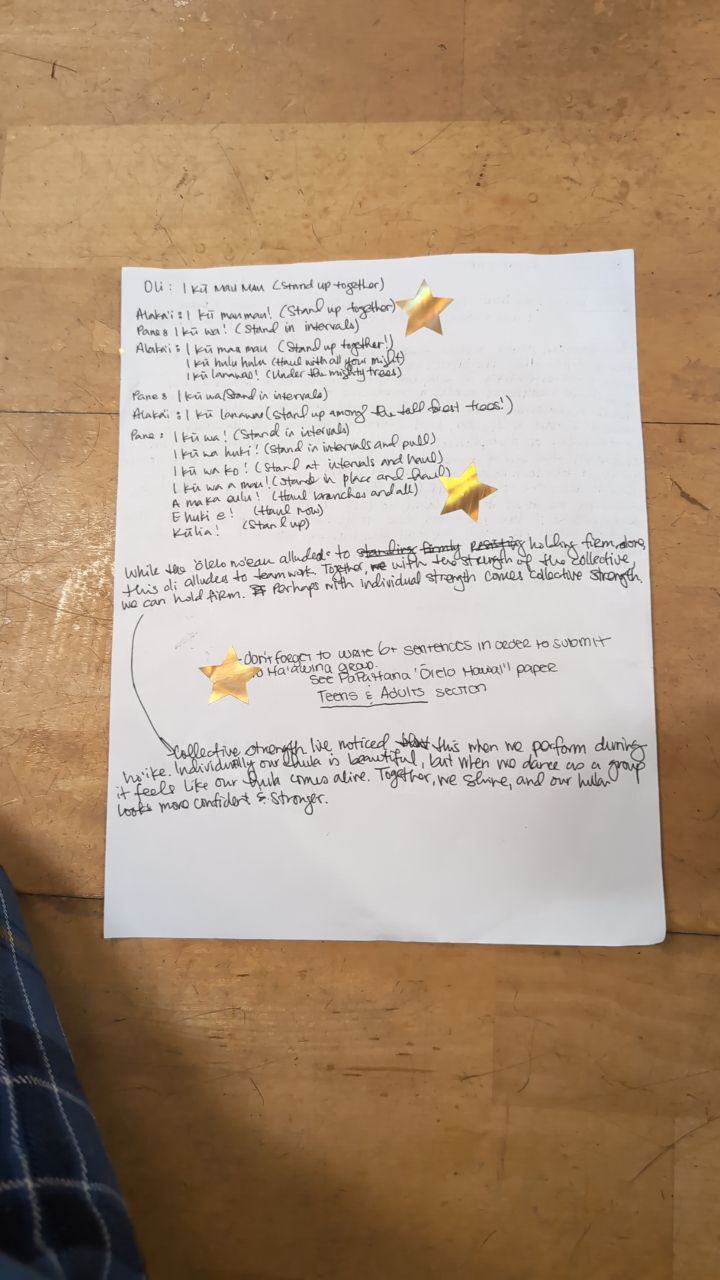 Oli: I Kū Mau Mau (Stand up together)
Alaka'i: I kū maumau! (Stand up together)
Pane: I kū wa! (Stand in intervals)
Alaka'i: I kū mau mau (Stand up together!)
I kū hulu hulu (Haul with all your might)
I kū lanawao! (Under the mighty trees)
Pane: I kū wa (Stand in intervals)
Alaka'i: I kū lanawao (Stand up among the tall forest trees!)
Pane: I kū wa! (Stand in intervals)
I kū wa huki! (Stand in intervals and pull)
I kū wa ko! (Stand at intervals and haul)
I kū wa a mau! (Stand in place and haul)
A maka eulu! (Haul branches and all)
E huki e! (Haul Now)
Kūlia! (Stand up)
While the 'ōlelo no'eau alluded to standing firmly resisting holding firm alone,
this oli alludes to teamwork. Together, we with the strength of the collective,
we can hold firm. Perhaps with individual strength comes collective strength.
-don't forget to write 6+ sentences in order to submit
to Ha'awina group.
See Papahana 'Ōlelo Hawai'i paper
Teens & Adults section
Collective strength. I've noticed that this when we perform during
ho'ike. Individually our hula is beautiful, but when we dance as a group
it feels like our hula comes alive. Together, we shine, and our hula
looks more confident & stronger.